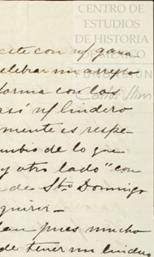 CENTRO DE
ESTUDIOS
DE HISTORIA
DE MÉXICO
cite con n/ gana
elebrar un arreglo
forma con los
así n/ lindero
mente es respe-
mbio de lo que
y otro lado" con
de Sto Domingo
quirir.-
dan pues mucho
de tener un lindero